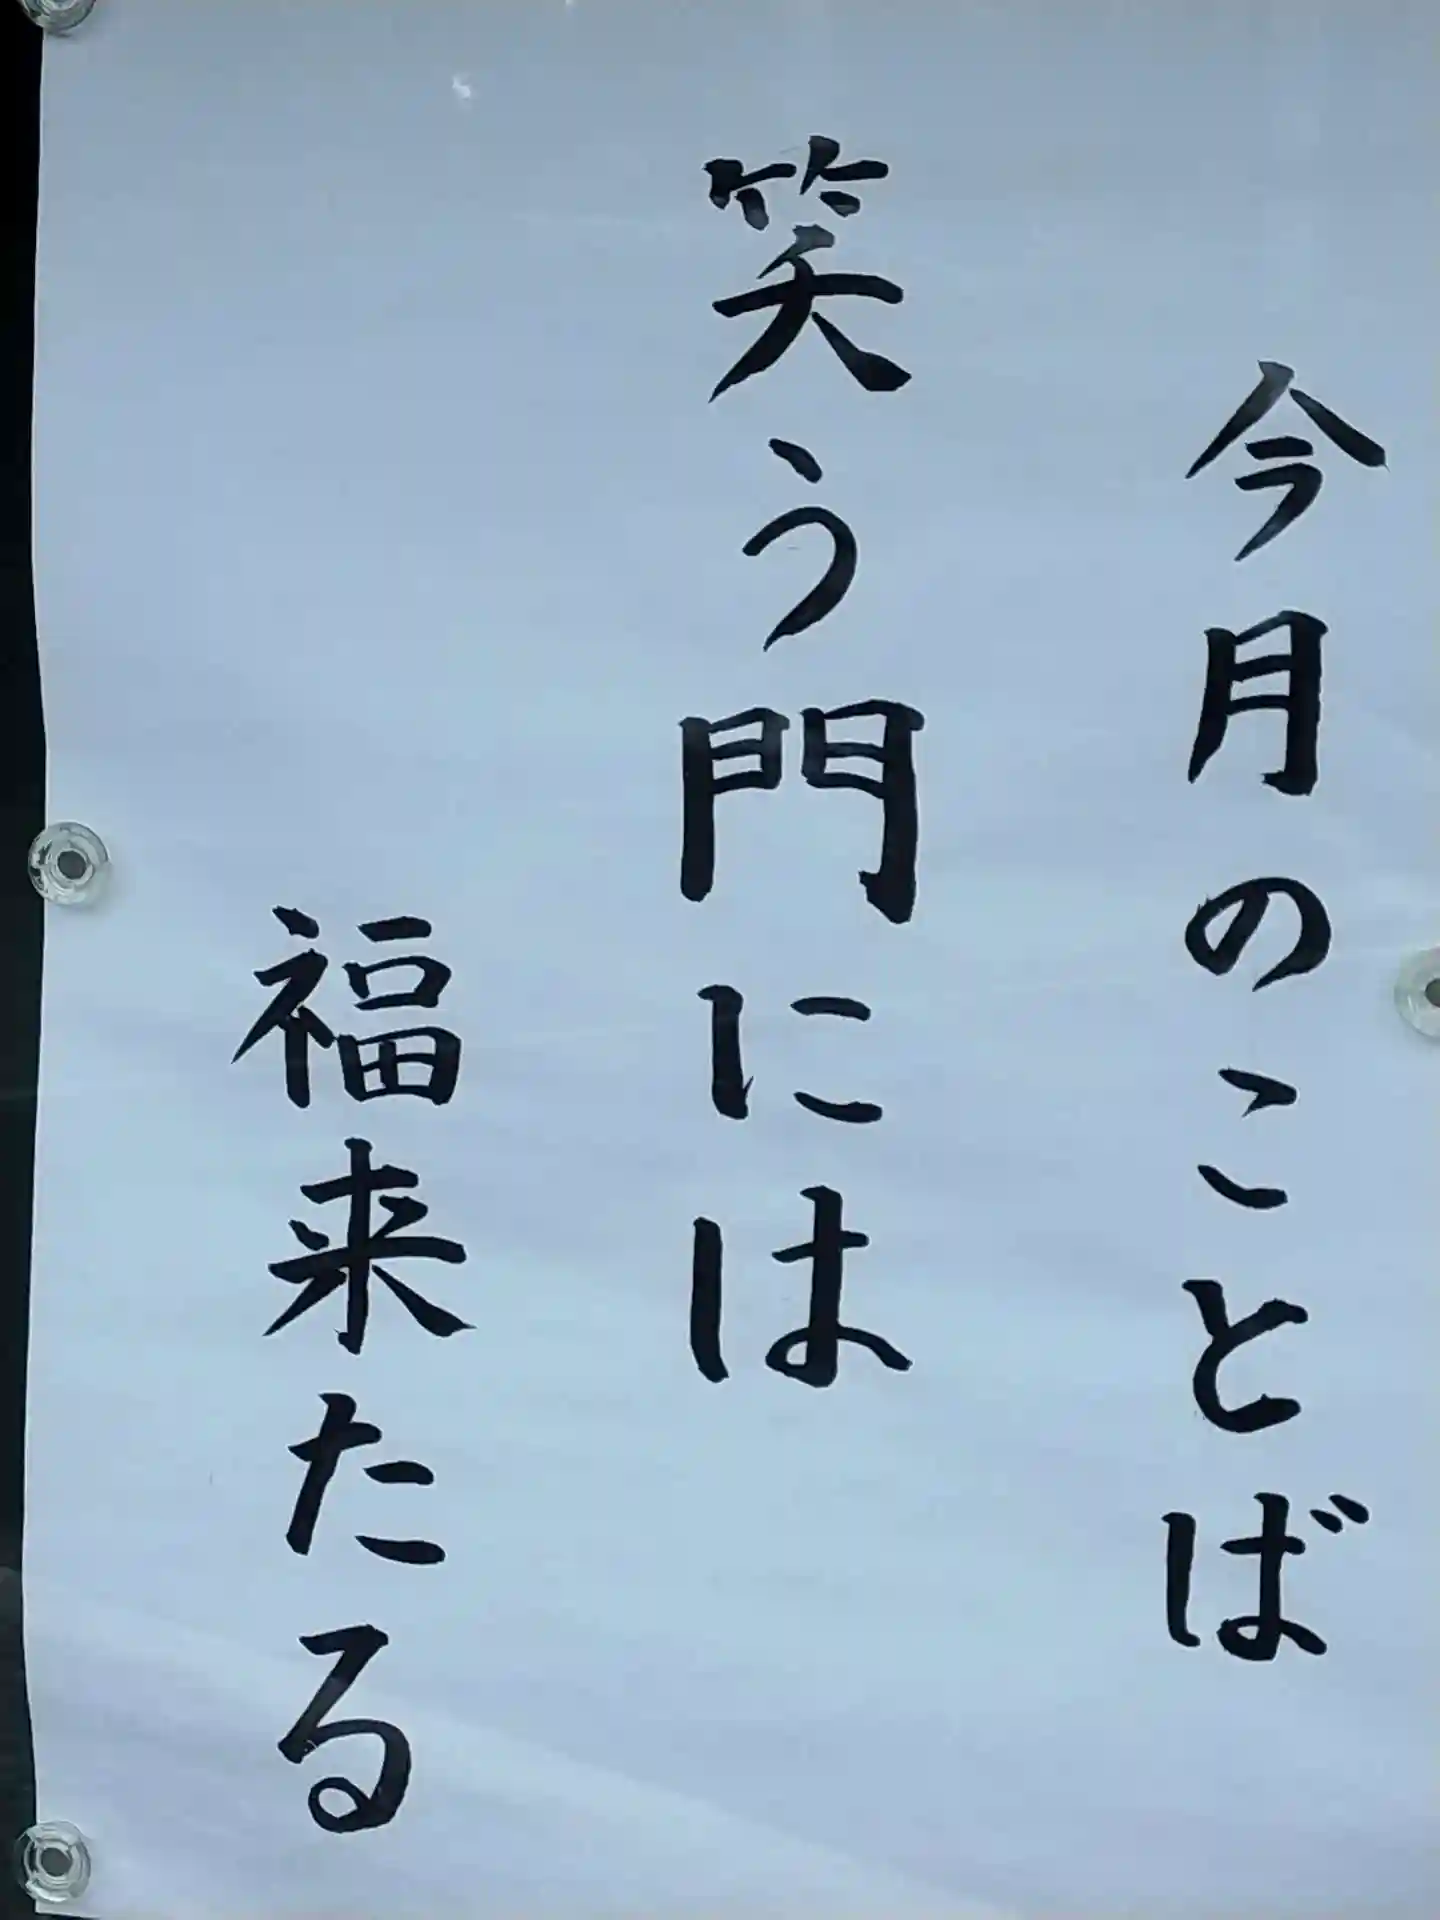 今月のことば
笑う門には
福来たる